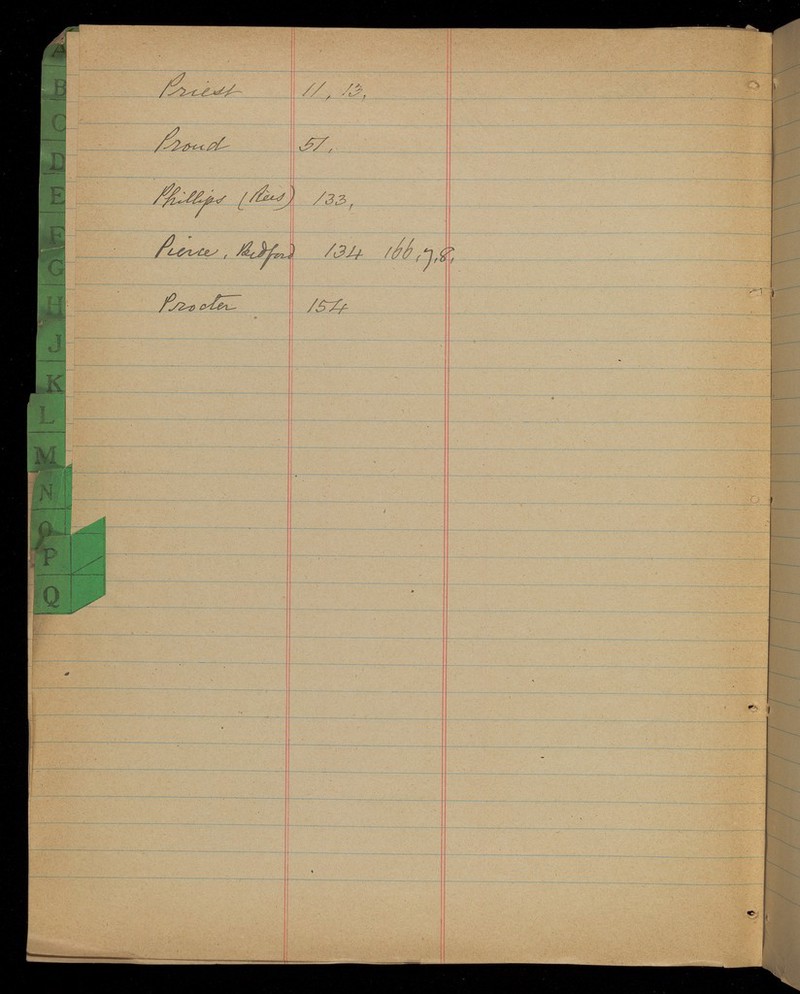 A
B
C
D
E
F
G
H
J
K
L
M
N
O
P
Q
Priest 11, 13,
Proud 51,
Phillips (Rees) 133,
Pierce, Bedford 134 166,7,8,
Procter 154